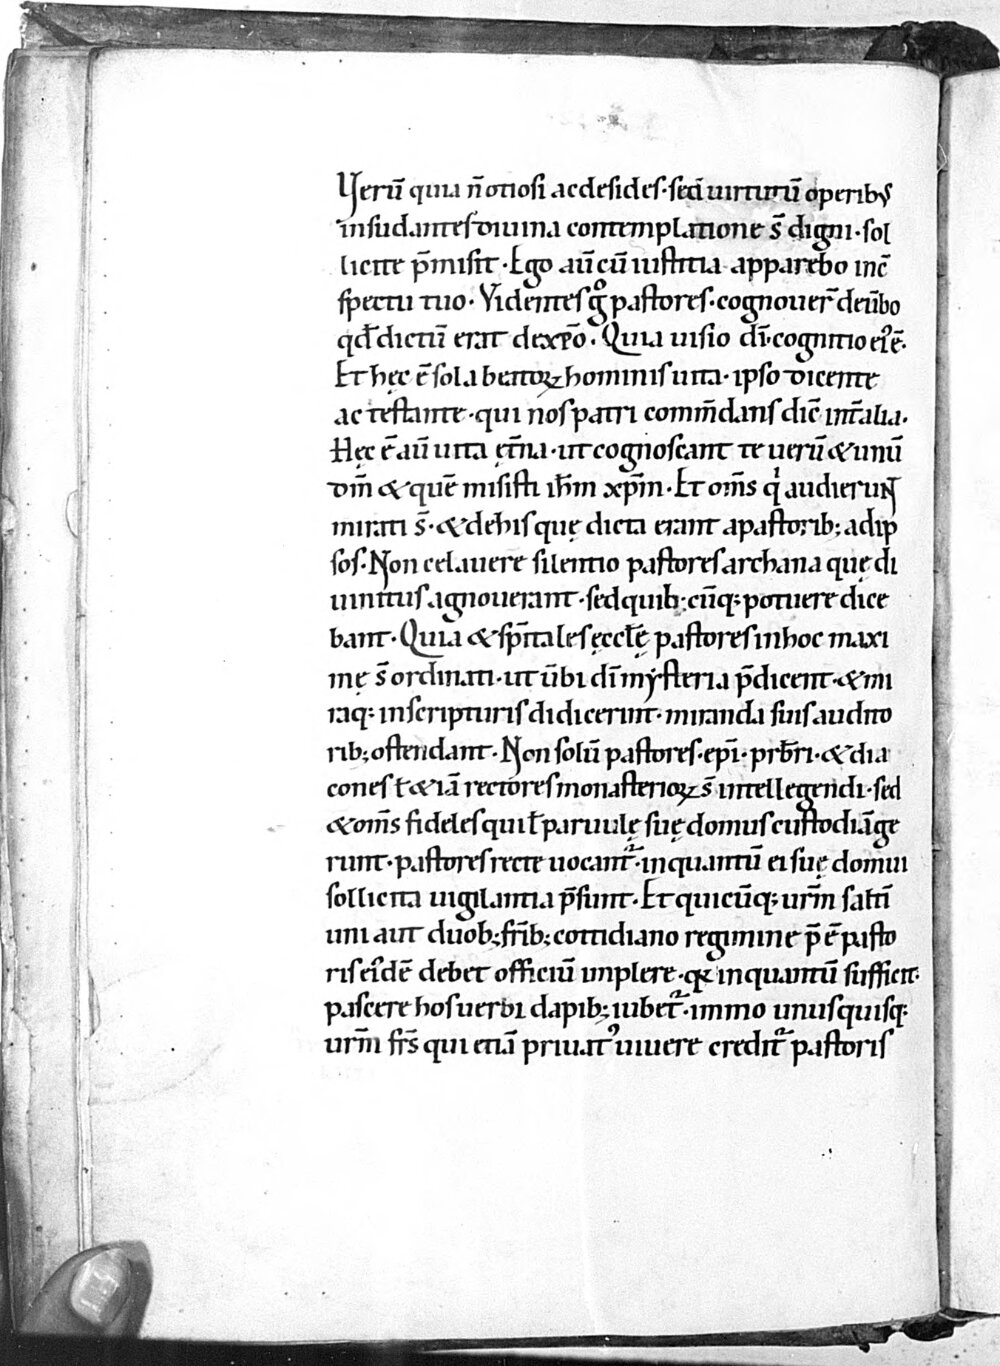 Verū quia n̄ otiosi ac desides · sed uirtutū operibꝰ
insudantes diuina contemplatione s̄ digni · sol
licite p̄misit · Ego aū cū iustitia apparebo inc̄
spectu tuo · Videntes gͦ pastores · cognouer̄ deūbo
qd̄ dictū erat de xp̄o · Quia uisio dī · cognitio ei᾿ ē ·
Et hęc ē sola beatoꝝ hominis uita · ipso dicente
ac testante · qui nos patri com̄dans dic̄ int̄ alia ·
Hęc ē aū uita ęt̄na · ut cognoscant te uerū & unū
dm̄ & quē misisti ih̄m xp̄m · Et om̄s qͥ audierunt
mirati s̄ · & de his quę dicta erant a pastorib; ad ip
sos · Non celauere silentio pastores archana quę di
uinitus agnouerant · sed quib; cūq; potuere dice
bant · Quia & sp̄itales ęccl̄ę pastores in hoc maxi
mę s̄ ordinati · ut ūbi dī mẏsteria p̄dicent · & mi
raq; in scripturis didicerint · miranda suis audito
rib; ostendant · Non solū pastores · ep̄i · prb̄ri · & dia
cones ł & iā rectores monasterioꝝ s̄ intellegendi · sed
& om̄s fideles qui ł paruulę suę domus custodiā ge
runt · pastores recte uocant᷑ · inquantū ei suę domui
sollicita uigilantia p̄sunt · Et quicūq; ur̄m salt̄i
uni aut duob; fr̄ib; cottidiano regimine p̄ ē pasto
ris eīdē debet officiū implere · qꝛ inquantū sufficit ·
pascere hos uerbi dapib; iubet᷑ · immo unusquisq;
ur̄m fr̄s qui etiā priuatꝰ uiuere credit᷑ pastoris